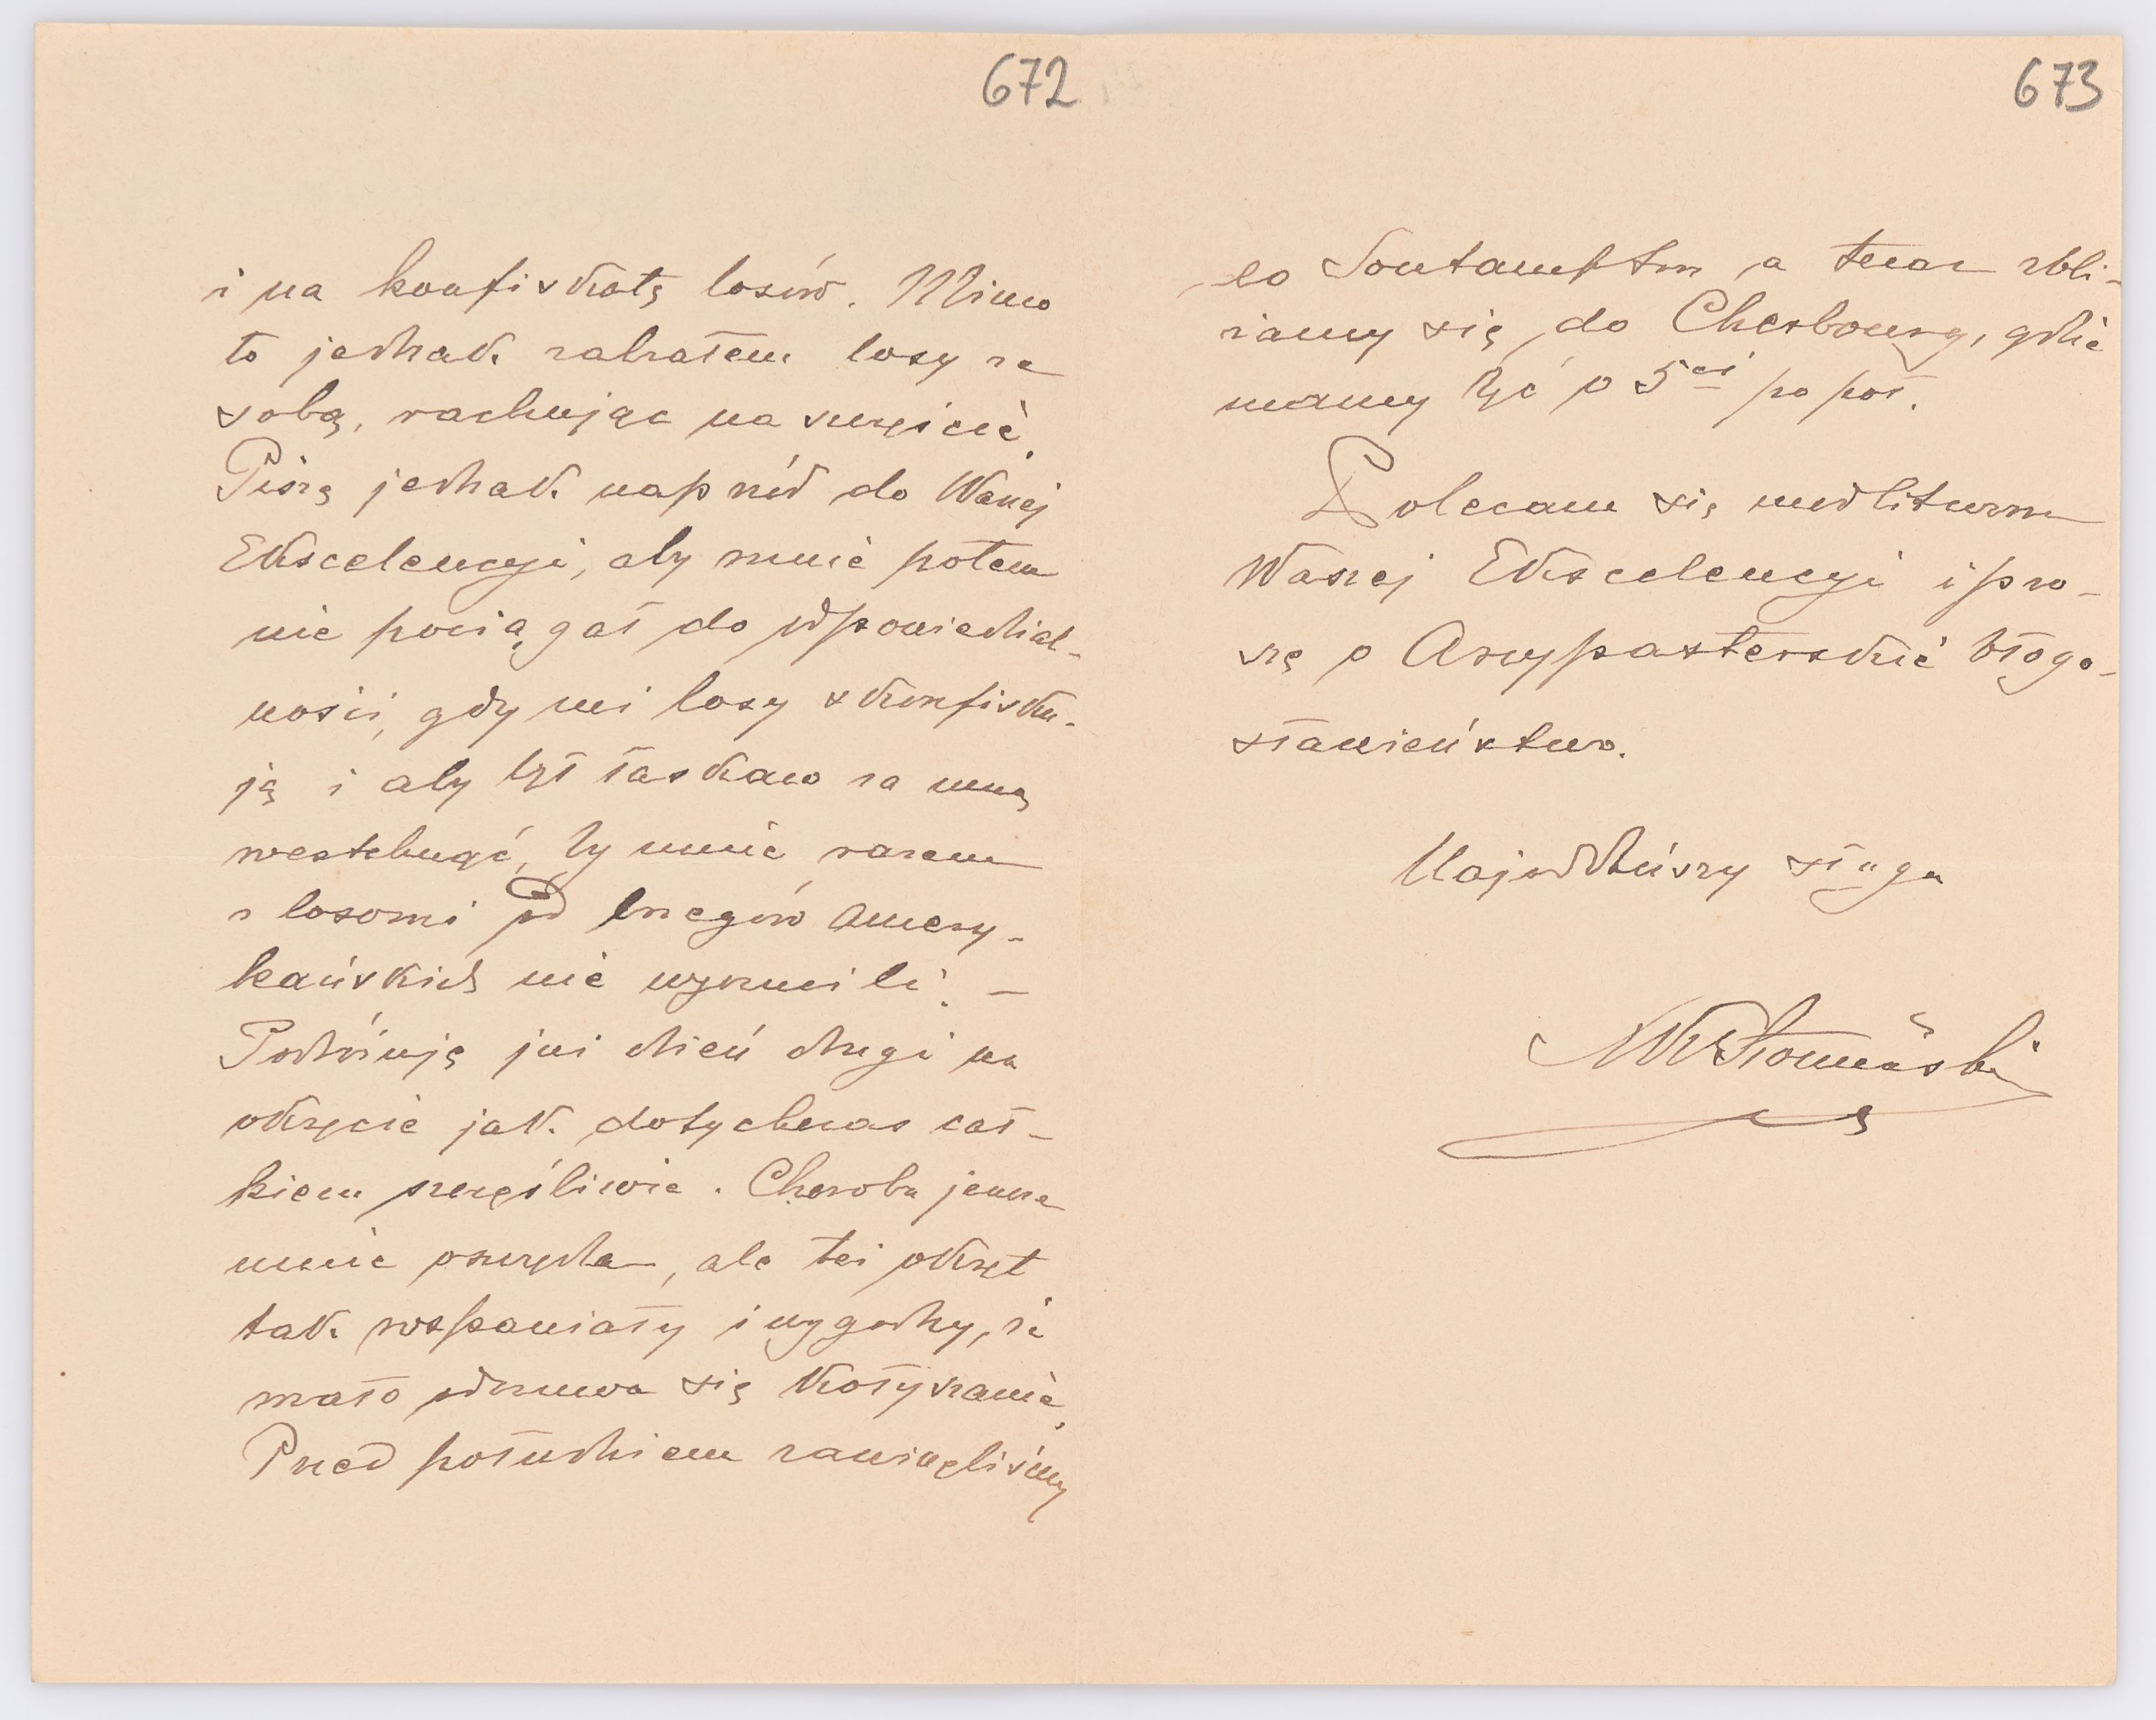 672
i na konfiskatę losów. Mimo
to jednak zabrałem losy ze
sobą, rachując na szczęście.
Piszę jednak naprzód do Waszej
Ekscelencyi, aby mnie potem
nie pociągał do odpowiedzial-
ności, gdy mi losy skonfisku-
ją i aby był łaskaw za mną
westchnąć, by mnie razem
z losami od brzegów amery-
kańskich nie wyrzucili. –
Podróżuję już dzień drugi na
okręcie jak dotychczas cał-
kiem szczęśliwie. Choroba jeszcze
mnie oszczędza, ale też okręt
tak wspaniały i wygodny, że
mało odczuwa się kołysanie.
Przed południem zawinęliśmy
673
do Soutampton a teraz zbli-
żamy się do Cherbourg, gdzie
mamy być o 5ej po poł.
Polecam się modlitwom
Waszej Ekscelencyi i pro-
szę o Arcypasterskie błogo-
sławieństwo.
Najniższy sługa